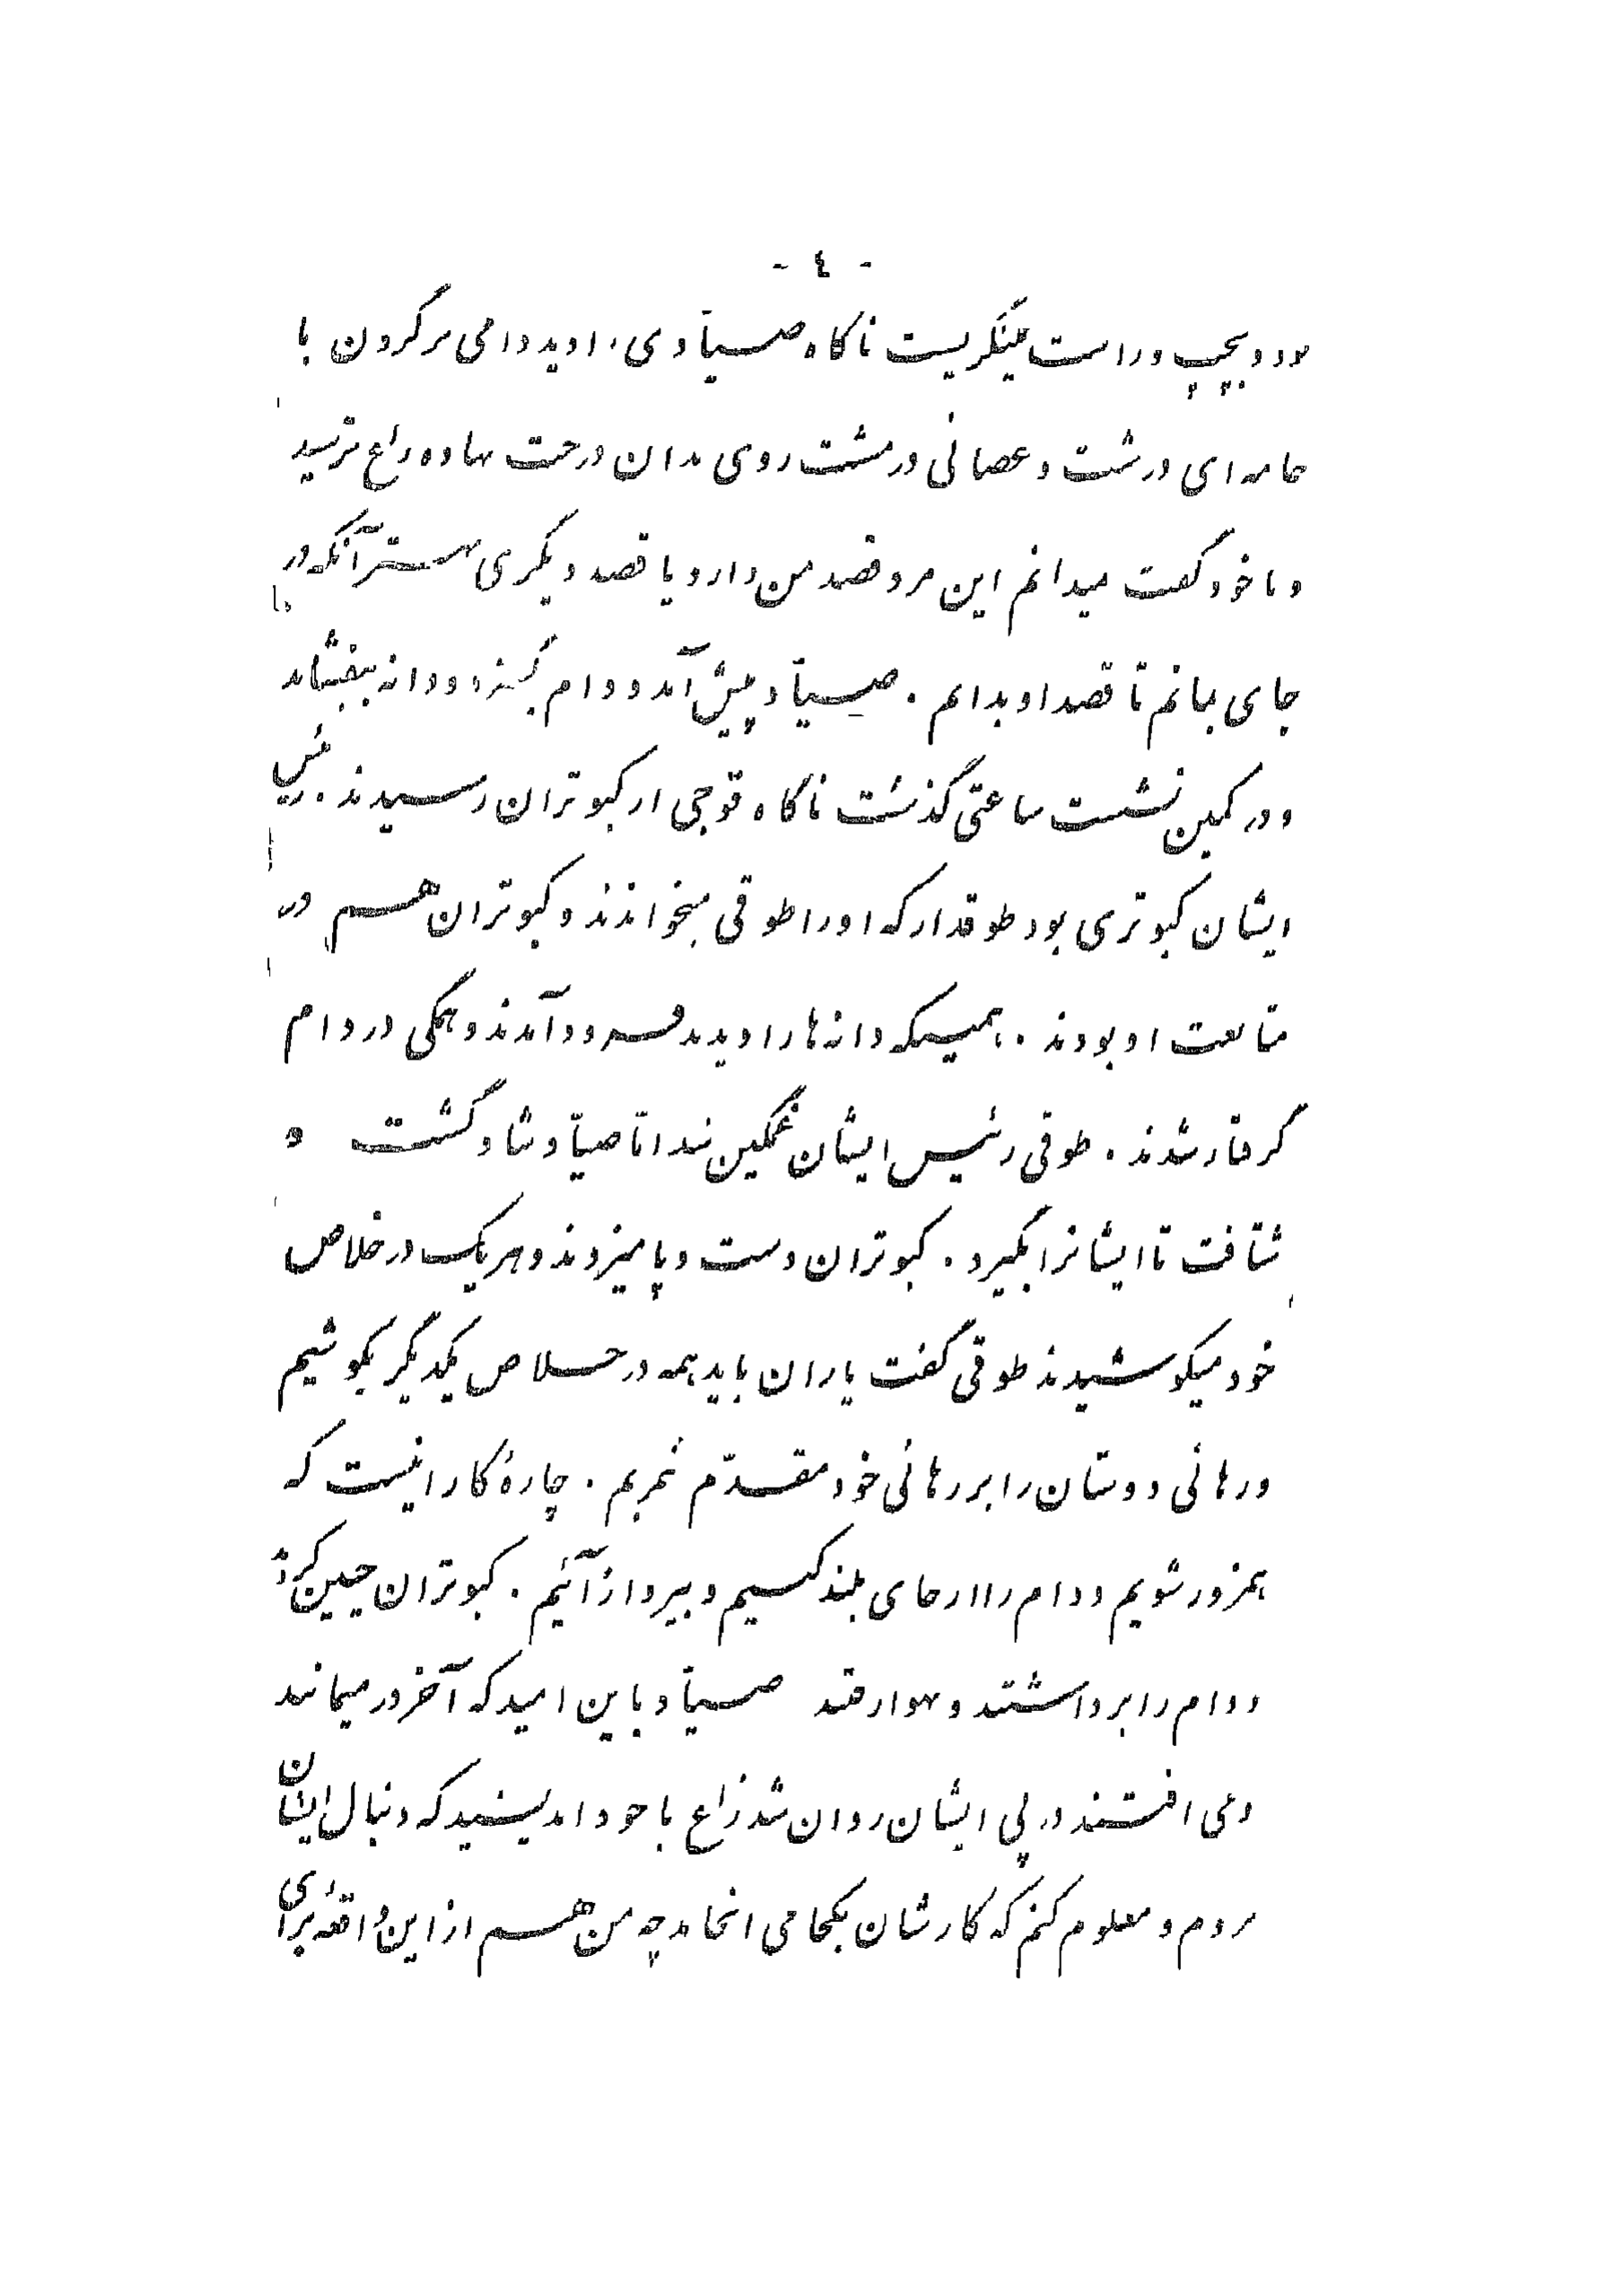 - ٤ -
بود و بچپ و راست مینگریست ناگاه صیّادی را دید دامی بر گردن با
جامه‌ای درشت و عصائی در مشت روی بدان درخت نهاده زاغ بترسید
و با خود گفت میدانم این مرد قصد من دارد یا قصد دیگری بهتر آنکه در
جای بمانم تا قصد او بدانم . صیّاد پیش آمد و دام بگسترد و دانه بیفشاند
و در کمین نشست ساعتی گذشت ناگاه فوجی از کبوتران رسیدند . رئیس
ایشان کبوتری بود طوقدار که او را طوقی میخواندند و کبوتران هم در
متابعت او بودند . همینکه دانه‌ها را دیدند فرود آمدند و همگی در دام
گرفتار شدند . طوقی رئیس ایشان غمگین شد امّا صیّاد شاد گشت و
شتافت تا ایشانرا بگیرد . کبوتران دست و پا میزدند و هر یک در خلاص
خود میکوشیدند طوقی گفت یاران باید همه در خلاص یکدیگر بکوشیم
و رهائی دوستان را بر رهائی خود مقدّم شمریم . چارهٔ کار اینست که
همزور شویم و دام را از جای بلند کنیم و بپرواز آئیم . کبوتران چنین کردند
و دام را برداشتند و بهوا رفتند صیّاد باین امید که آخر در میمانند
و می افتند در پی ایشان روان شد زاغ با خود اندیشید که دنبال ایشان
بروم و معلوم کنم که کارشان بکجا می انجامد چه من هم از این واقعه برای